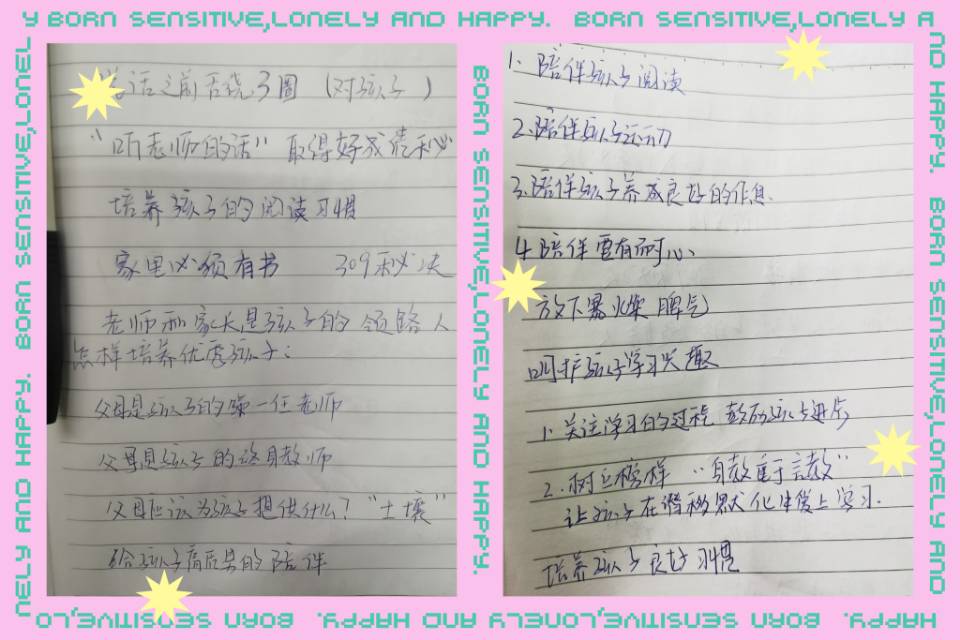 Y BORN SENSITIVE,LONELY AND HAPPY. BORN SENSITIVE,LONELY A
ND HAPPY. BORN SENSITIVE,LONELY AND
HAPPY. BORN SENSITIVE,LONELY AND HAPPY. BORN SENSITIVE,LO
NELY AND HAPPY. BORN SENSITIVE,LONEL
BORN SENSITIVE,LONELY AND HAPPY.
话之前舌绕3圈（对孩子）
“听老师的话”取得好成绩
培养孩子的阅读习惯
家里必须有书 309秒
老师和家长是孩子的领路人
怎样培养优秀孩子：
父母是孩子的第一任老师
父母是孩子的终身教师
父母应该为孩子提供什么？“土壤”
给孩子高质量的陪伴
1、陪伴孩子阅读
2.陪伴孩子运动
3.陪伴孩子养成良好的作息.
4.陪伴要有耐心、
放下暴火燥脾气
呵护孩子学习兴趣
1、关注学习的过程 鼓励孩子进步
2.树立榜样“身教重于言教”
让孩子在潜移默化中学习.
培养孩子良好习惯